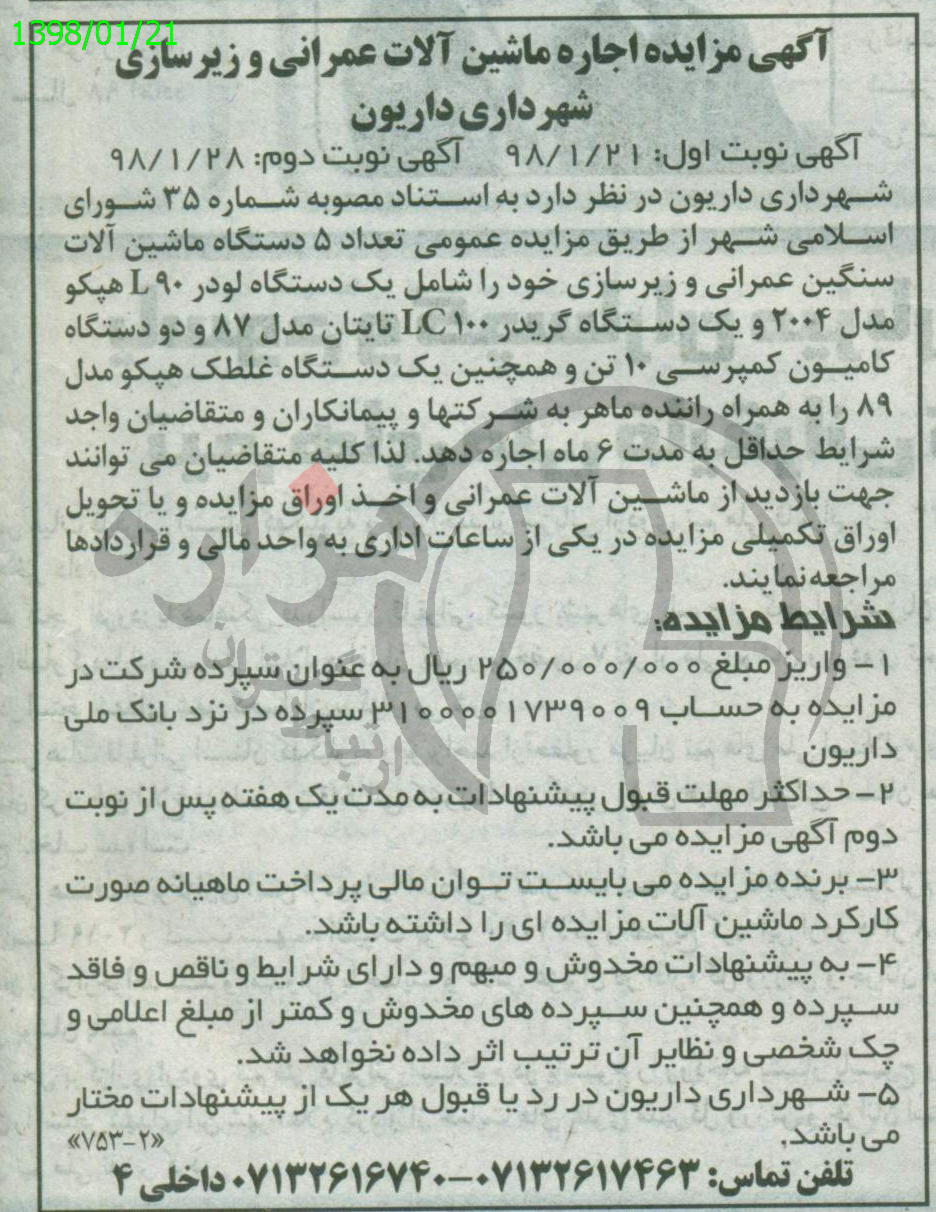 1398/01/21
آگهی مزایده اجاره ماشین آلات عمرانی و زیرسازی
شهرداری داریون
آگهی نوبت اول: ۹۸/۱/۲۱ آگهی نوبت دوم: ۹۸/۱/۲۸
شهرداری داریون در نظر دارد به استناد مصوبه شماره ۳۵ شورای
اسلامی شهر از طریق مزایده عمومی تعداد ۵ دستگاه ماشین آلات
سنگین عمرانی و زیرسازی خود را شامل یک دستگاه لودر L ۹۰ هپکو
مدل ۲۰۰۴ و یک دستگاه گریدر LC ۱۰۰ تایتان مدل ۸۷ و دو دستگاه
کامیون کمپرسی ۱۰ تن و همچنین یک دستگاه غلطک هپکو مدل
۸۹ را به همراه راننده ماهر به شرکتها و پیمانکاران و متقاضیان واجد
شرایط حداقل به مدت ۶ ماه اجاره دهد. لذا کلیه متقاضیان می توانند
جهت بازدید از ماشین آلات عمرانی و اخذ اوراق مزایده و یا تحویل
اوراق تکمیلی مزایده در یکی از ساعات اداری به واحد مالی و قراردادها
مراجعه نمایند.
شرایط مزایده:
۱- واریز مبلغ ۲۵۰/۰۰۰/۰۰۰ ریال به عنوان سپرده شرکت در
مزایده به حساب ۳۱۰۰۰۰۱۷۳۹۰۰۹ سپرده در نزد بانک ملی
داریون
۲- حداکثر مهلت قبول پیشنهادات به مدت یک هفته پس از نوبت
دوم آگهی مزایده می باشد.
۳- برنده مزایده می بایست توان مالی پرداخت ماهیانه صورت
کارکرد ماشین آلات مزایده ای را داشته باشد.
۴- به پیشنهادات مخدوش و مبهم و دارای شرایط و ناقص و فاقد
سپرده و همچنین سپرده های مخدوش و کمتر از مبلغ اعلامی و
چک شخصی و نظایر آن ترتیب اثر داده نخواهد شد.
۵- شهرداری داریون در رد یا قبول هر یک از پیشنهادات مختار
می باشد. «۷۵۳-۲»
تلفن تماس: ۰۷۱۳۲۶۱۷۴۶۳-۰۷۱۳۲۶۱۶۷۴۰ داخلی ۴
هزاره